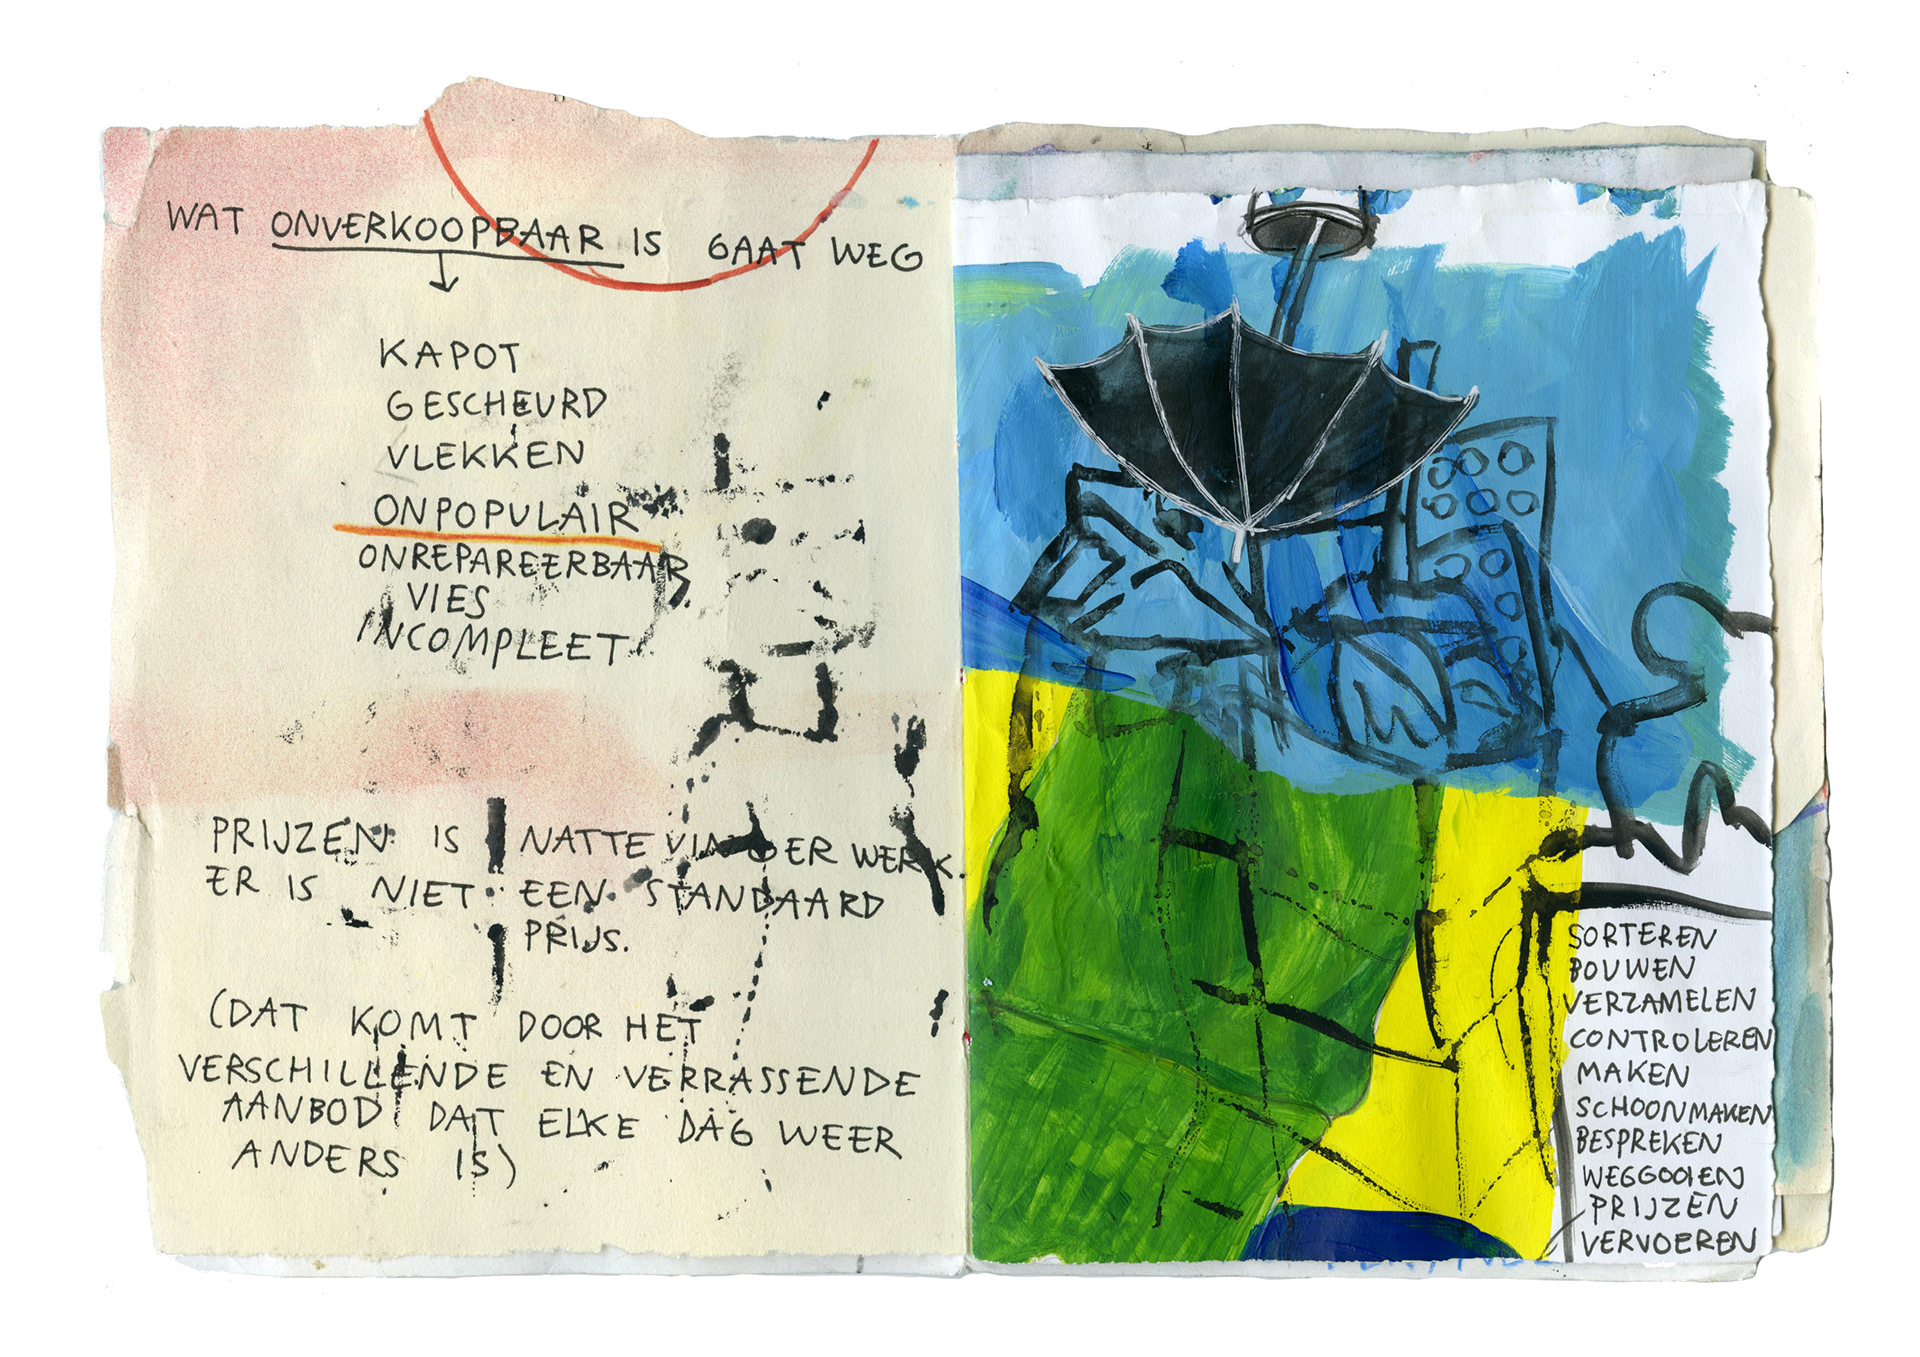 WAT ONVERKOOPBAAR IS GAAT WEG
KAPOT
GESCHEURD
VLEKKEN
ONPOPULAIR
ONREPAREERBAAR
VIES
INCOMPLEET
PRIJZEN IS NATTE VINGER WERK.
ER IS NIET EEN STANDAARD
PRIJS.
(DAT KOMT DOOR HET
VERSCHILLENDE EN VERRASSENDE
AANBOD DAT ELKE DAG WEER
ANDERS IS)
SORTEREN
BOUWEN
VERZAMELEN
CONTROLEREN
MAKEN
SCHOONMAKEN
BESPREKEN
WEGGOOIEN
PRIJZEN
VERVOEREN